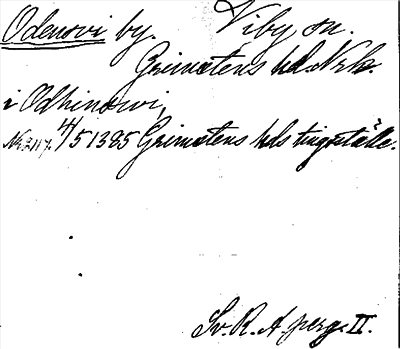 Odensvi by. Viby sn.
Grimstens hd. Nrk.
i Odhinswi,
Nr. 2117. 4/5 1385 Grimstens hds tingställe.
Sv. R. A. perg. II.